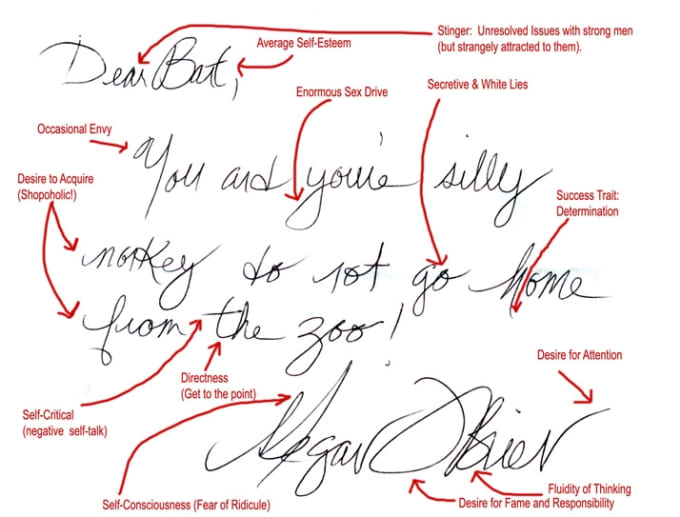 Stinger: Unresolved Issues with strong men
(but strangely attracted to them).
Average Self-Esteem
Dear Bart,
Enormous Sex Drive
Secretive & White Lies
Occasional Envy
You and you're silly
Desire to Acquire
(Shopoholic!)
Success Trait:
Determination
monkey do not go home
from the zoo!
Directness
(Get to the point)
Desire for Attention
Self-Critical
(negative self-talk)
Megan O'Brien
Self-Consciousness (Fear of Ridicule)
Fluidity of Thinking
Desire for Fame and Responsibility